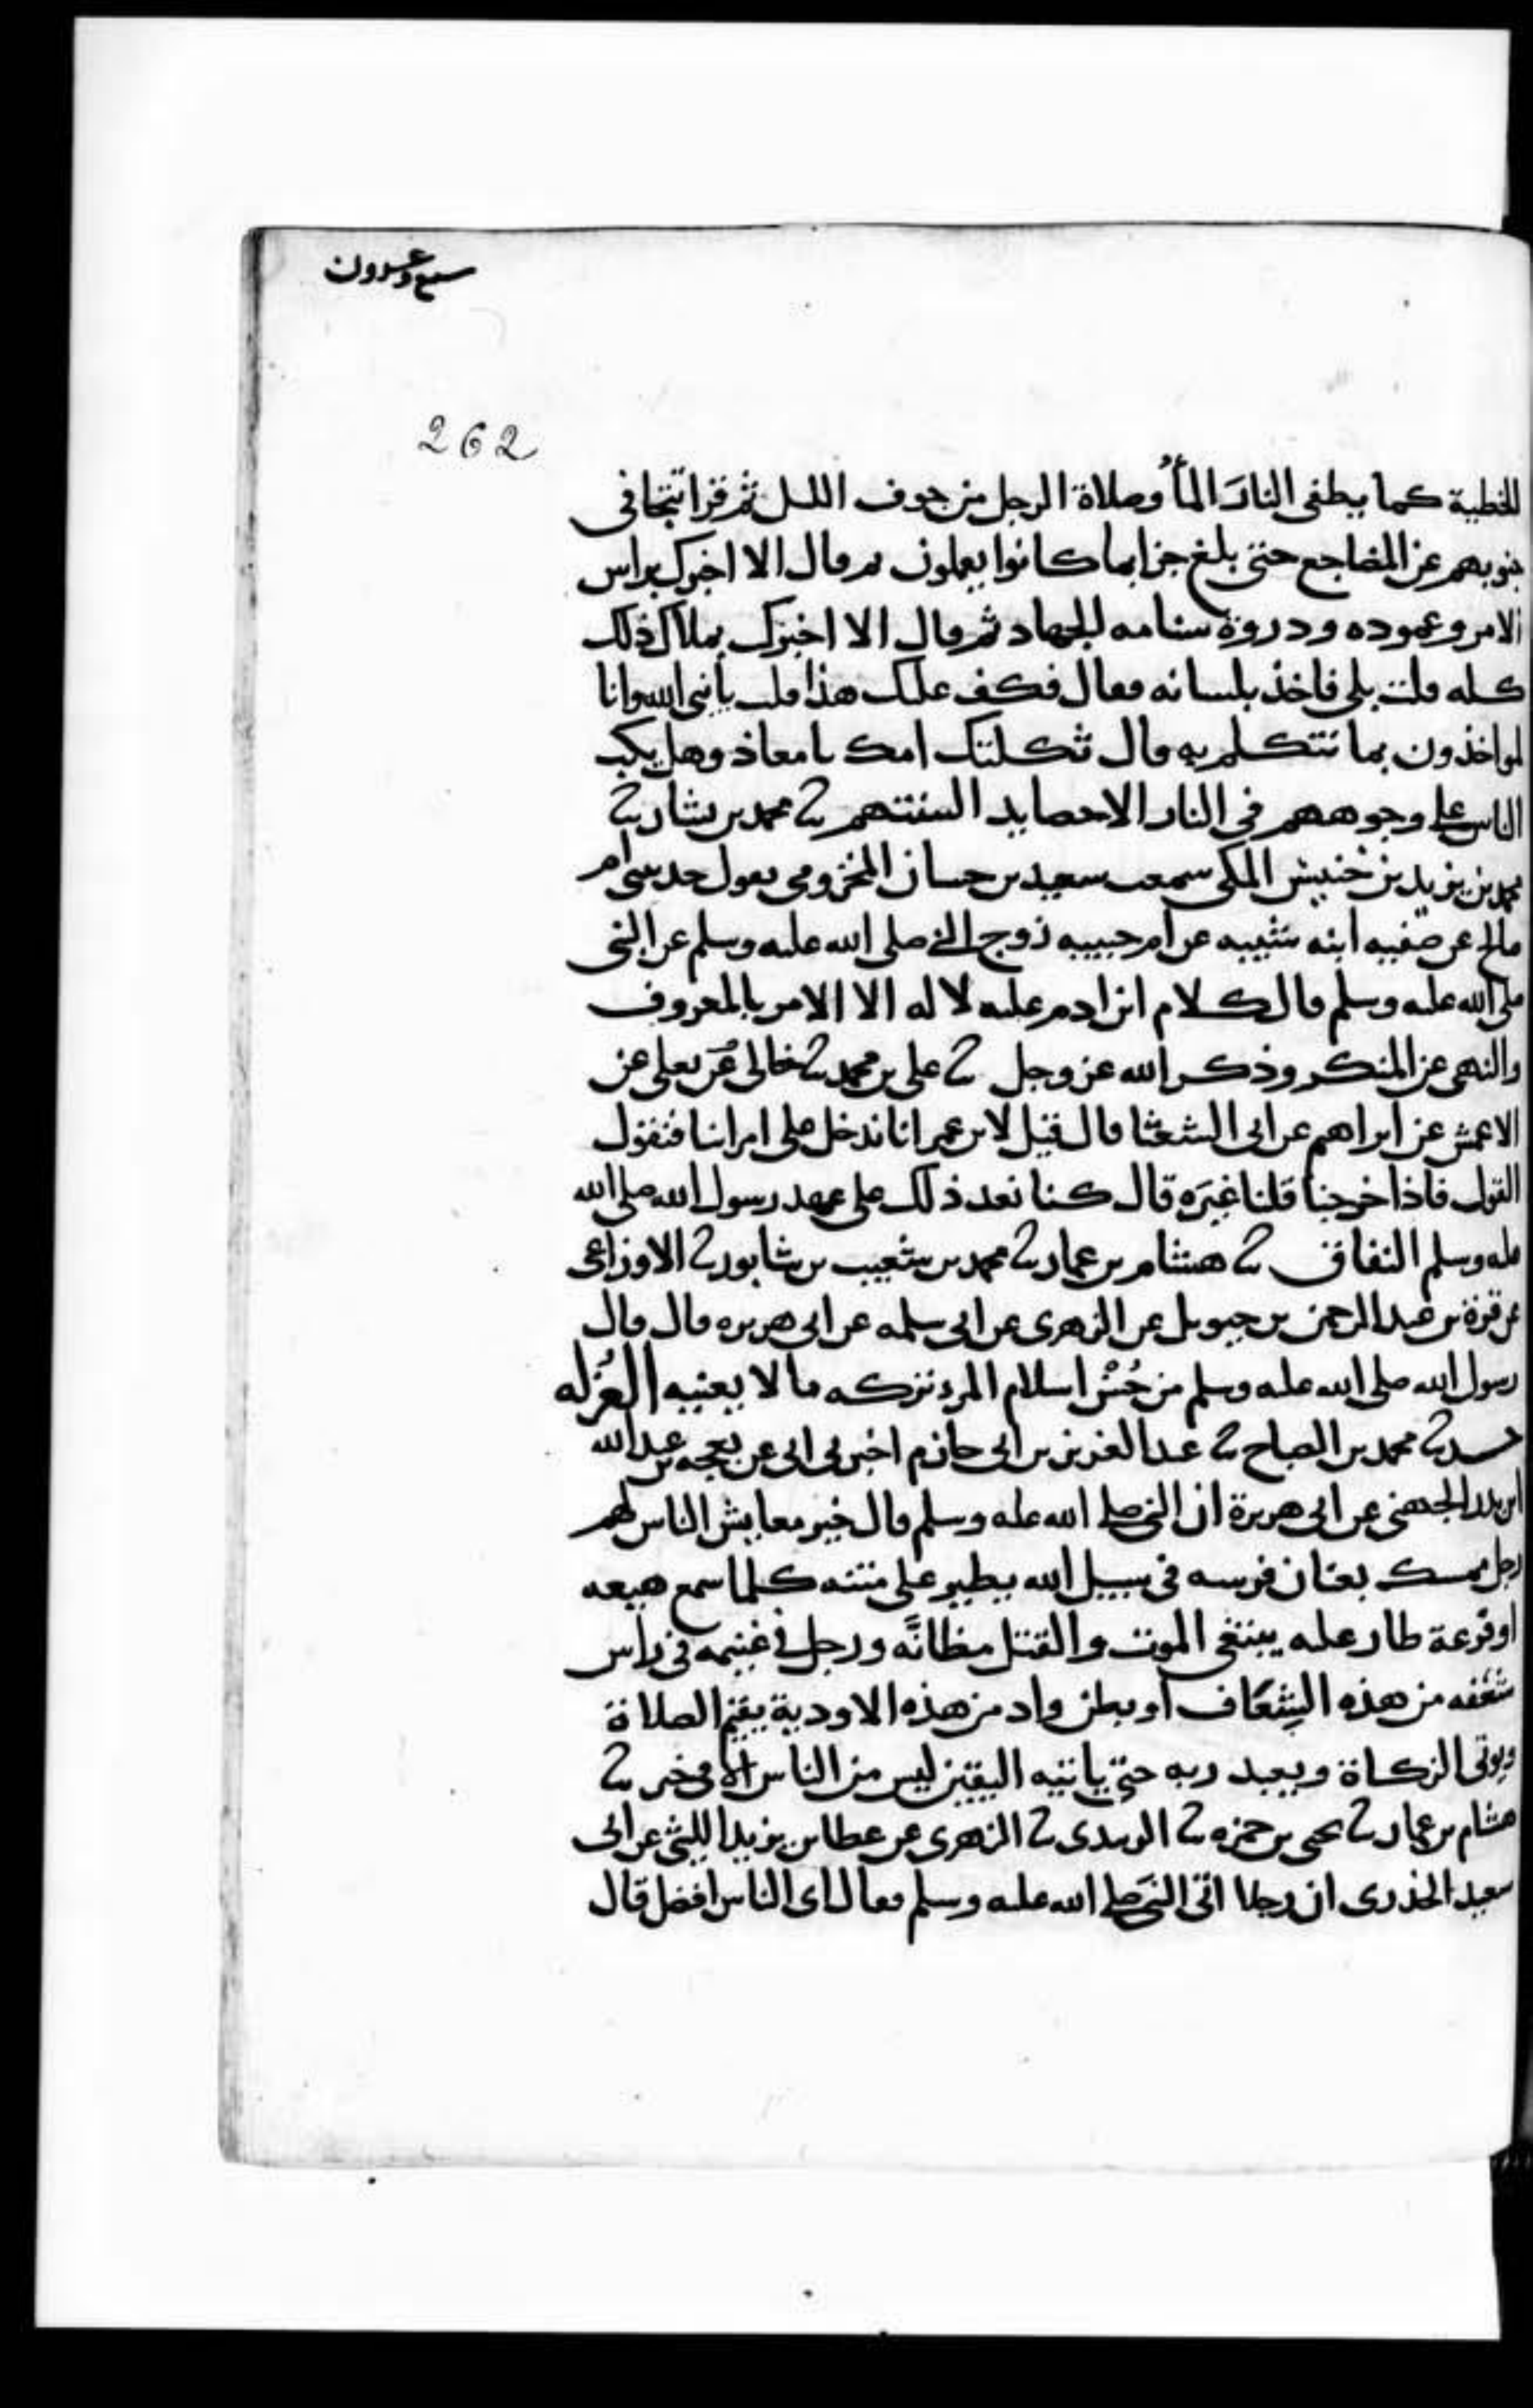 سبع وعشرون
262
الخطية كما يطفى النارَ المأُ وصلاة الرجل من جوف الليل ثم قرا تتجافى
جنوبهم عن المضاجع حتى بلغ جزا بما كانوا يعملون ثم قال الا اخبرك براس
الامر وعموده ودروة سنامه الجهاد ثم قال الا اخبرك بملاك ذلك
كله قلت بلى فاخذ بلسانه فقال فكف عليك هذا قلت يا نبى الله وانا
لمواخذون بما نتكلم به قال ثكلتك امك يا معاذ وهل يكب
الناس على وجوههم فى النار الا حصايد السنتهم ثنا محمد بن بشار ثنا
محمد بن يزيد بن خنيس المكى سمعت سعيد بن حسان المخزومى يقول حدثتنى ام
صالح عن صفيه ابنه شيبه عن ام حبيبه زوج النبى صلى الله عليه وسلم عن النبى
صلى الله عليه وسلم قال كلام ابن ادم عليه لا له الا الامر بالمعروف
والنهى عن المنكر وذكر الله عز وجل ثنا على بن محمد ثنا خالى عن يعلى عن
الاعمش عن ابراهيم عن ابى الشعثا قال قيل لابن عمر انا ندخل على امراينا فنقول
القول فاذا خرجنا قلنا غيَره قال كنا نعد ذلك على عهد رسول الله صلى الله
عليه وسلم النفاق ثنا هشام بن عمار ثنا محمد بن شعيب بن شابور ثنا الاوزاعى
عن قرة بن عبد الرحمن بن حيويل عن الزهرى عن ابى سلمه عن ابى هريره قال قال
رسول الله صلى الله عليه وسلم من حُسْن اسلام المرء تركه ما لا يعنيه العُزله
حدثنا محمد بن الصباح ثنا عبد العزيز بن ابى حازم اخبرنى ابى عن بعجه بن عبد الله
ابن بدر الجهنى عن ابى هريرة ان النبى صلى الله عليه وسلم قال خير معايش الناس لهم
رجل ممسك بعنان فرسه فى سبيل الله يطير على متنه كلما سمع هيعه
او فزعة طار عليه يبتغى الموت والقتل مظانَّه ورجل فى غنيمه فى راس
شَعَفه من هذه الشِعَاف او بطن واد من هذه الاودية يقيم الصلاة
ويوتى الزكاة ويعبد ربه حتى ياتيه اليقين ليس من الناس الا فى خير ثنا
هشام بن عمار ثنا يحيى بن حمزه ثنا الزبيدى ثنا الزهرى عن عطا بن يزيد الليثى عن ابى
سعيد الخذرى ان رجلا اتى النبى صلى الله عليه وسلم فقال اى الناس افضل قال